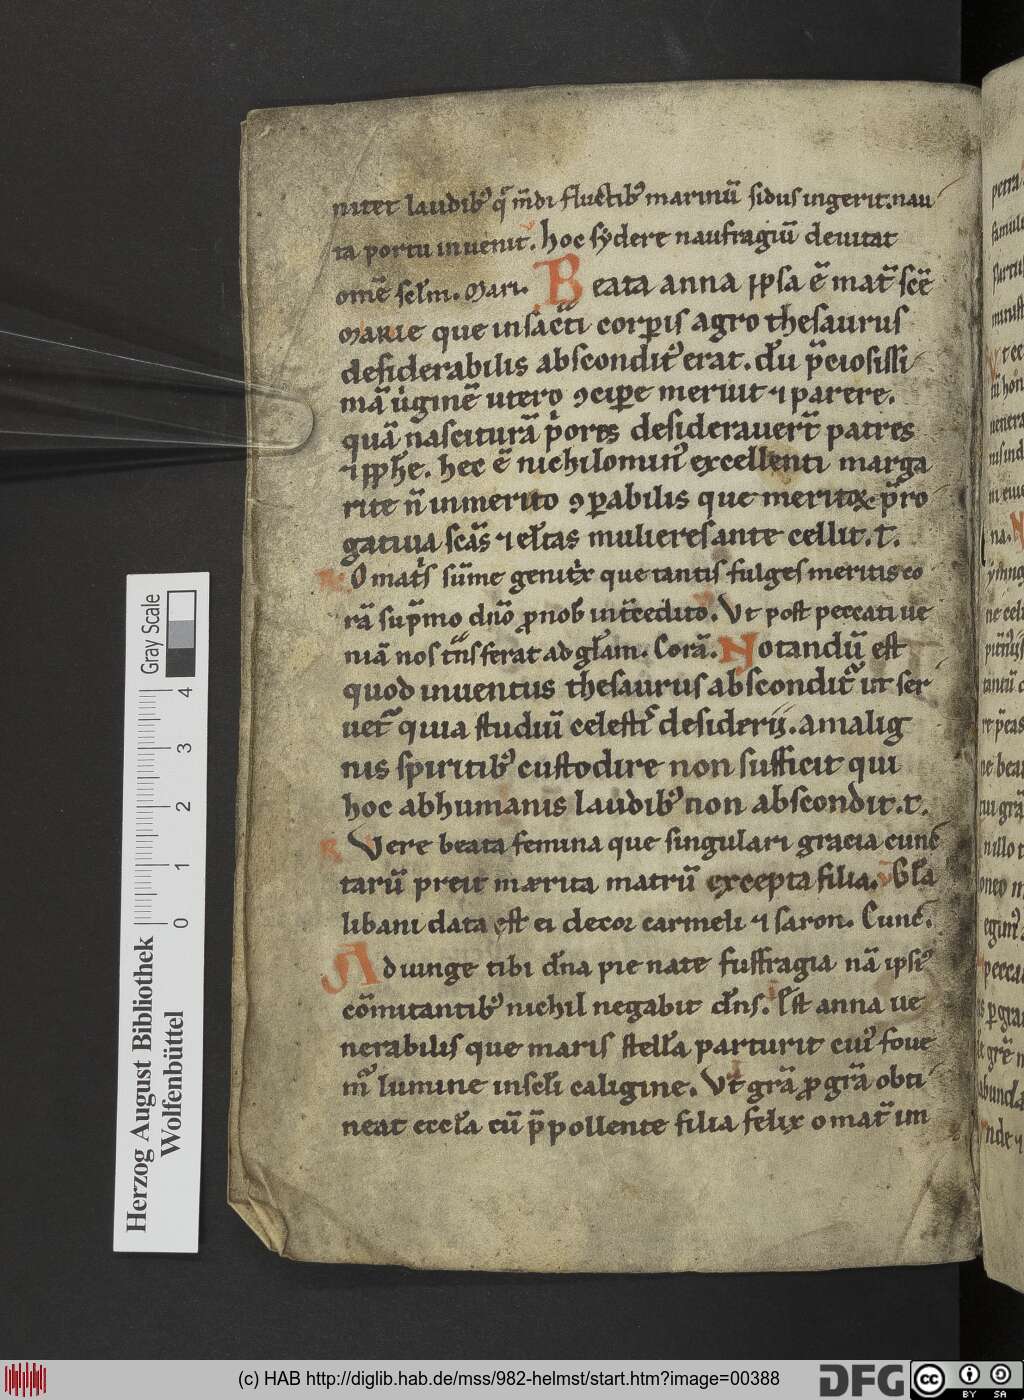 nitet laudib' q̄ m̄di fluctib' marinū sidus ingerit. nau
ta portu inuenit. hoc sydere naufragiū deuitat
omē sclm. Mari. Beata anna ipsa ē mat̄ scē
Marie que in sacti corpis agro thesaurus
desiderabilis abscondit' erat. dū p̄ciosissi
mā uginē utero ꝯcipe meruit ⁊ parere.
quā nasciturā p̄ores desiderauert̄ patres
⁊ pph̄e. hec ē nichilomin' excellenti marga
rite n̄ inmerito ꝯpabilis que meritoꝝ p̄ro
gatiua scās ⁊ elc̄tas mulieres ante cellit. t̄.
O mat's sūme genit'x que tantis fulges meritis eo
rā sup̄mo dn̄o p nob' int̄cedito. Vt post peccati ue
niā nos t̄ns ferat ad gl̄am. Corā. Notandū est
quod inuentus thesaurus abscondit̄ ut ser
uet̄ quia studiū celest' desiderij. a malig
nis spiritib' custodire non sufficit qui
hoc ab humanis laudib' non abscondit. t̄.
R Vere beata femina que singulari gracia cunc
tarū preit merita matrū excepta filia. V Gl̄a
libani data est ei decor carmeli ⁊ saron. Cunc.
Adiunge tibi dn̄a pie nate suffragia nā ipsi'
cōmitantib' nichil negabit dn̄s. Est anna ue
nerabilis que maris stella parturit cui' foue
m' lumine in secli caligine. Vt grā p grā obti
neat eccl̄a cū p̄pollente filia felix o mat̄ im
Gray Scale
0 1 2 3 4
Herzog August Bibliothek
Wolfenbüttel
(c) HAB http://diglib.hab.de/mss/982-helmst/start.htm?image=00388
DFG
cc BY SA